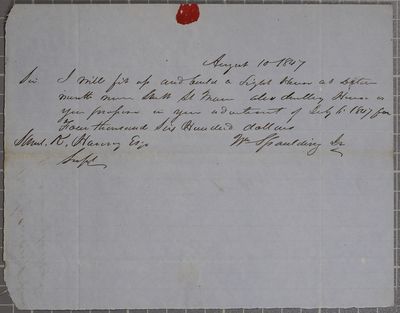 August 10 1847
Sir I will fit up and build a Light House at
mouth river Sault St Marie also dwelling House as
you propose in your advertisment of July 6 1847 for
Four thousand Six Hundred dollars
Saml. K. Haring Esq Wm Spaulding Jr
Supt